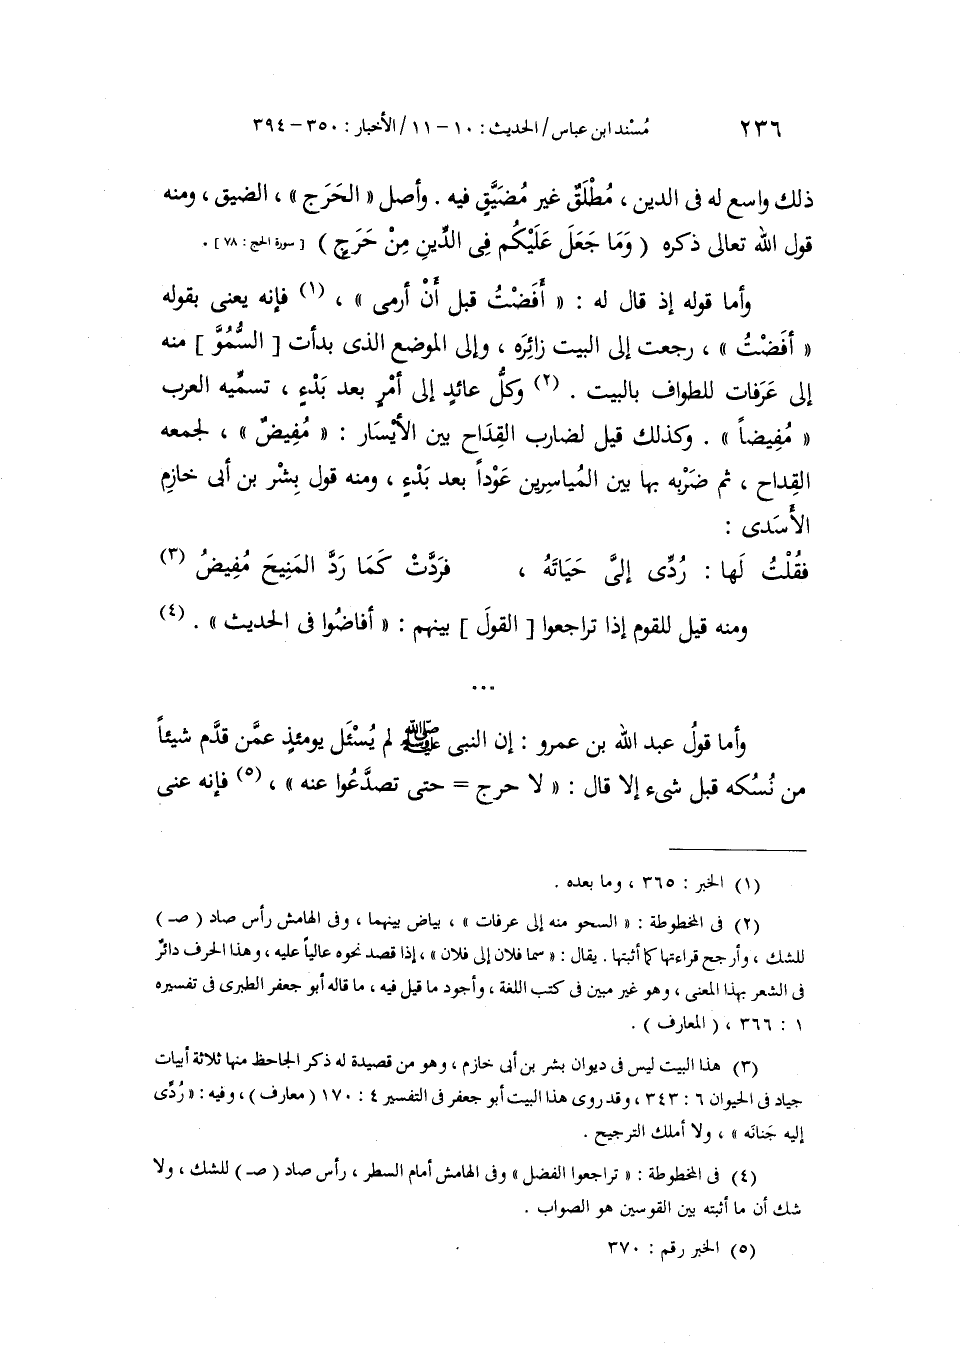 ٢٣٦ مُسْند ابن عباس / الحديث : ١٠ – ١١ / الأخبار : ٣٥٠ – ٣٩٤
ذلك واسع له فى الدين ، مُطْلَقٌ غير مُضَيَّقٍ فيه . وأصل « الحَرَج » ، الضيق ، ومنه
قول الله تعالى ذكره ( وَمَا جَعَلَ عَلَيْكُم فِى الدِّينِ مِنْ حَرَجٍ ) [ سورة الحج : ٧٨ ] .
وأما قوله إذ قال له : « أَفَضْتُ قبل أَنْ أرمى » ، (١) فإنه يعنى بقوله
« أفَضْتُ » ، رجعت إلى البيت زائِرَه ، وإلى الموضع الذى بدأت [ السُّمُوَّ ] منه
إلى عَرَفات للطواف بالبيت . (٢) وكلُّ عائدٍ إلى أمْرٍ بعد بَدْءٍ ، تسمِّيه العرب
« مُفِيضاً » . وكذلك قيل لضارب القِدَاح بين الأيْسَار : « مُفِيضٌ » ، لجمعه
القِداح ، ثم ضَرْبِه بها بين المُياسِرين عَوْداً بعد بَدْءٍ ، ومنه قول بِشْر بن أبى خازِم
الأَسَدى :
فقُلْتُ لَها : رُدِّى إلىَّ حَيَاتَهُ ، فرَدَّتْ كَمَا رَدَّ المَنِيحَ مُفِيضُ (٣)
ومنه قيل للقوم إذا تراجعوا [ القولَ ] بينهم : « أفاضُوا فى الحديث » . (٤)
...
وأما قولُ عبد الله بن عمرو : إن النبى ﷺ لم يُسْئَل يومئذٍ عمَّن قدَّم شيئاً
من نُسُكه قبل شىء إلا قال : « لا حرج = حتى تصدَّعُوا عنه » ، (٥) فإنه عنى
(١) الخبر : ٣٦٥ ، وما بعده .
(٢) فى المخطوطة : « السحو منه إلى عرفات » ، بياض بينهما ، وفى الهامش رأس صاد ( صـ )
للشك ، وأرجح قراءتها كما أثبتها . يقال : « سما فلان إلى فلان » ، إذا قصد نحوه عالياً عليه ، وهذا الحرف دائرٌ
فى الشعر بهذا المعنى ، وهو غير مبين فى كتب اللغة ، وأجود ما قيل فيه ، ما قاله أبو جعفر الطبرى فى تفسيره
١ : ٣٦٦ ، ( المعارف ) .
(٣) هذا البيت ليس فى ديوان بشر بن أبى خازم ، وهو من قصيدة له ذكر الجاحظ منها ثلاثة أبيات
جياد فى الحيوان ٦ : ٣٤٣ ، وقد روى هذا البيت أبو جعفر فى التفسير ٤ : ١٧٠ ( معارف ) ، وفيه : « رُدِّى
إليه جَنانَه » ، ولا أملك الترجيح .
(٤) فى المخطوطة : « تراجعوا الفضل » وفى الهامش أمام السطر ، رأس صاد ( صـ ) للشك ، ولا
شك أن ما أثبته بين القوسين هو الصواب .
(٥) الخبر رقم : ٣٧٠